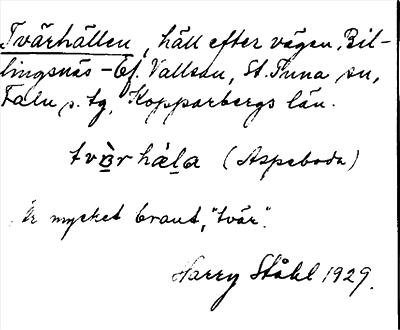 Tvärhällen, häll efter vägen, Bil-
lingsnäs – Ef. Vallsan, St. Tuna sn,
Falu s. tg, Kopparbergs län.
tvæ̀r hàḷa (Aspeboda)
Är mycket brant, "tvär".
Harry Ståhl 1929.